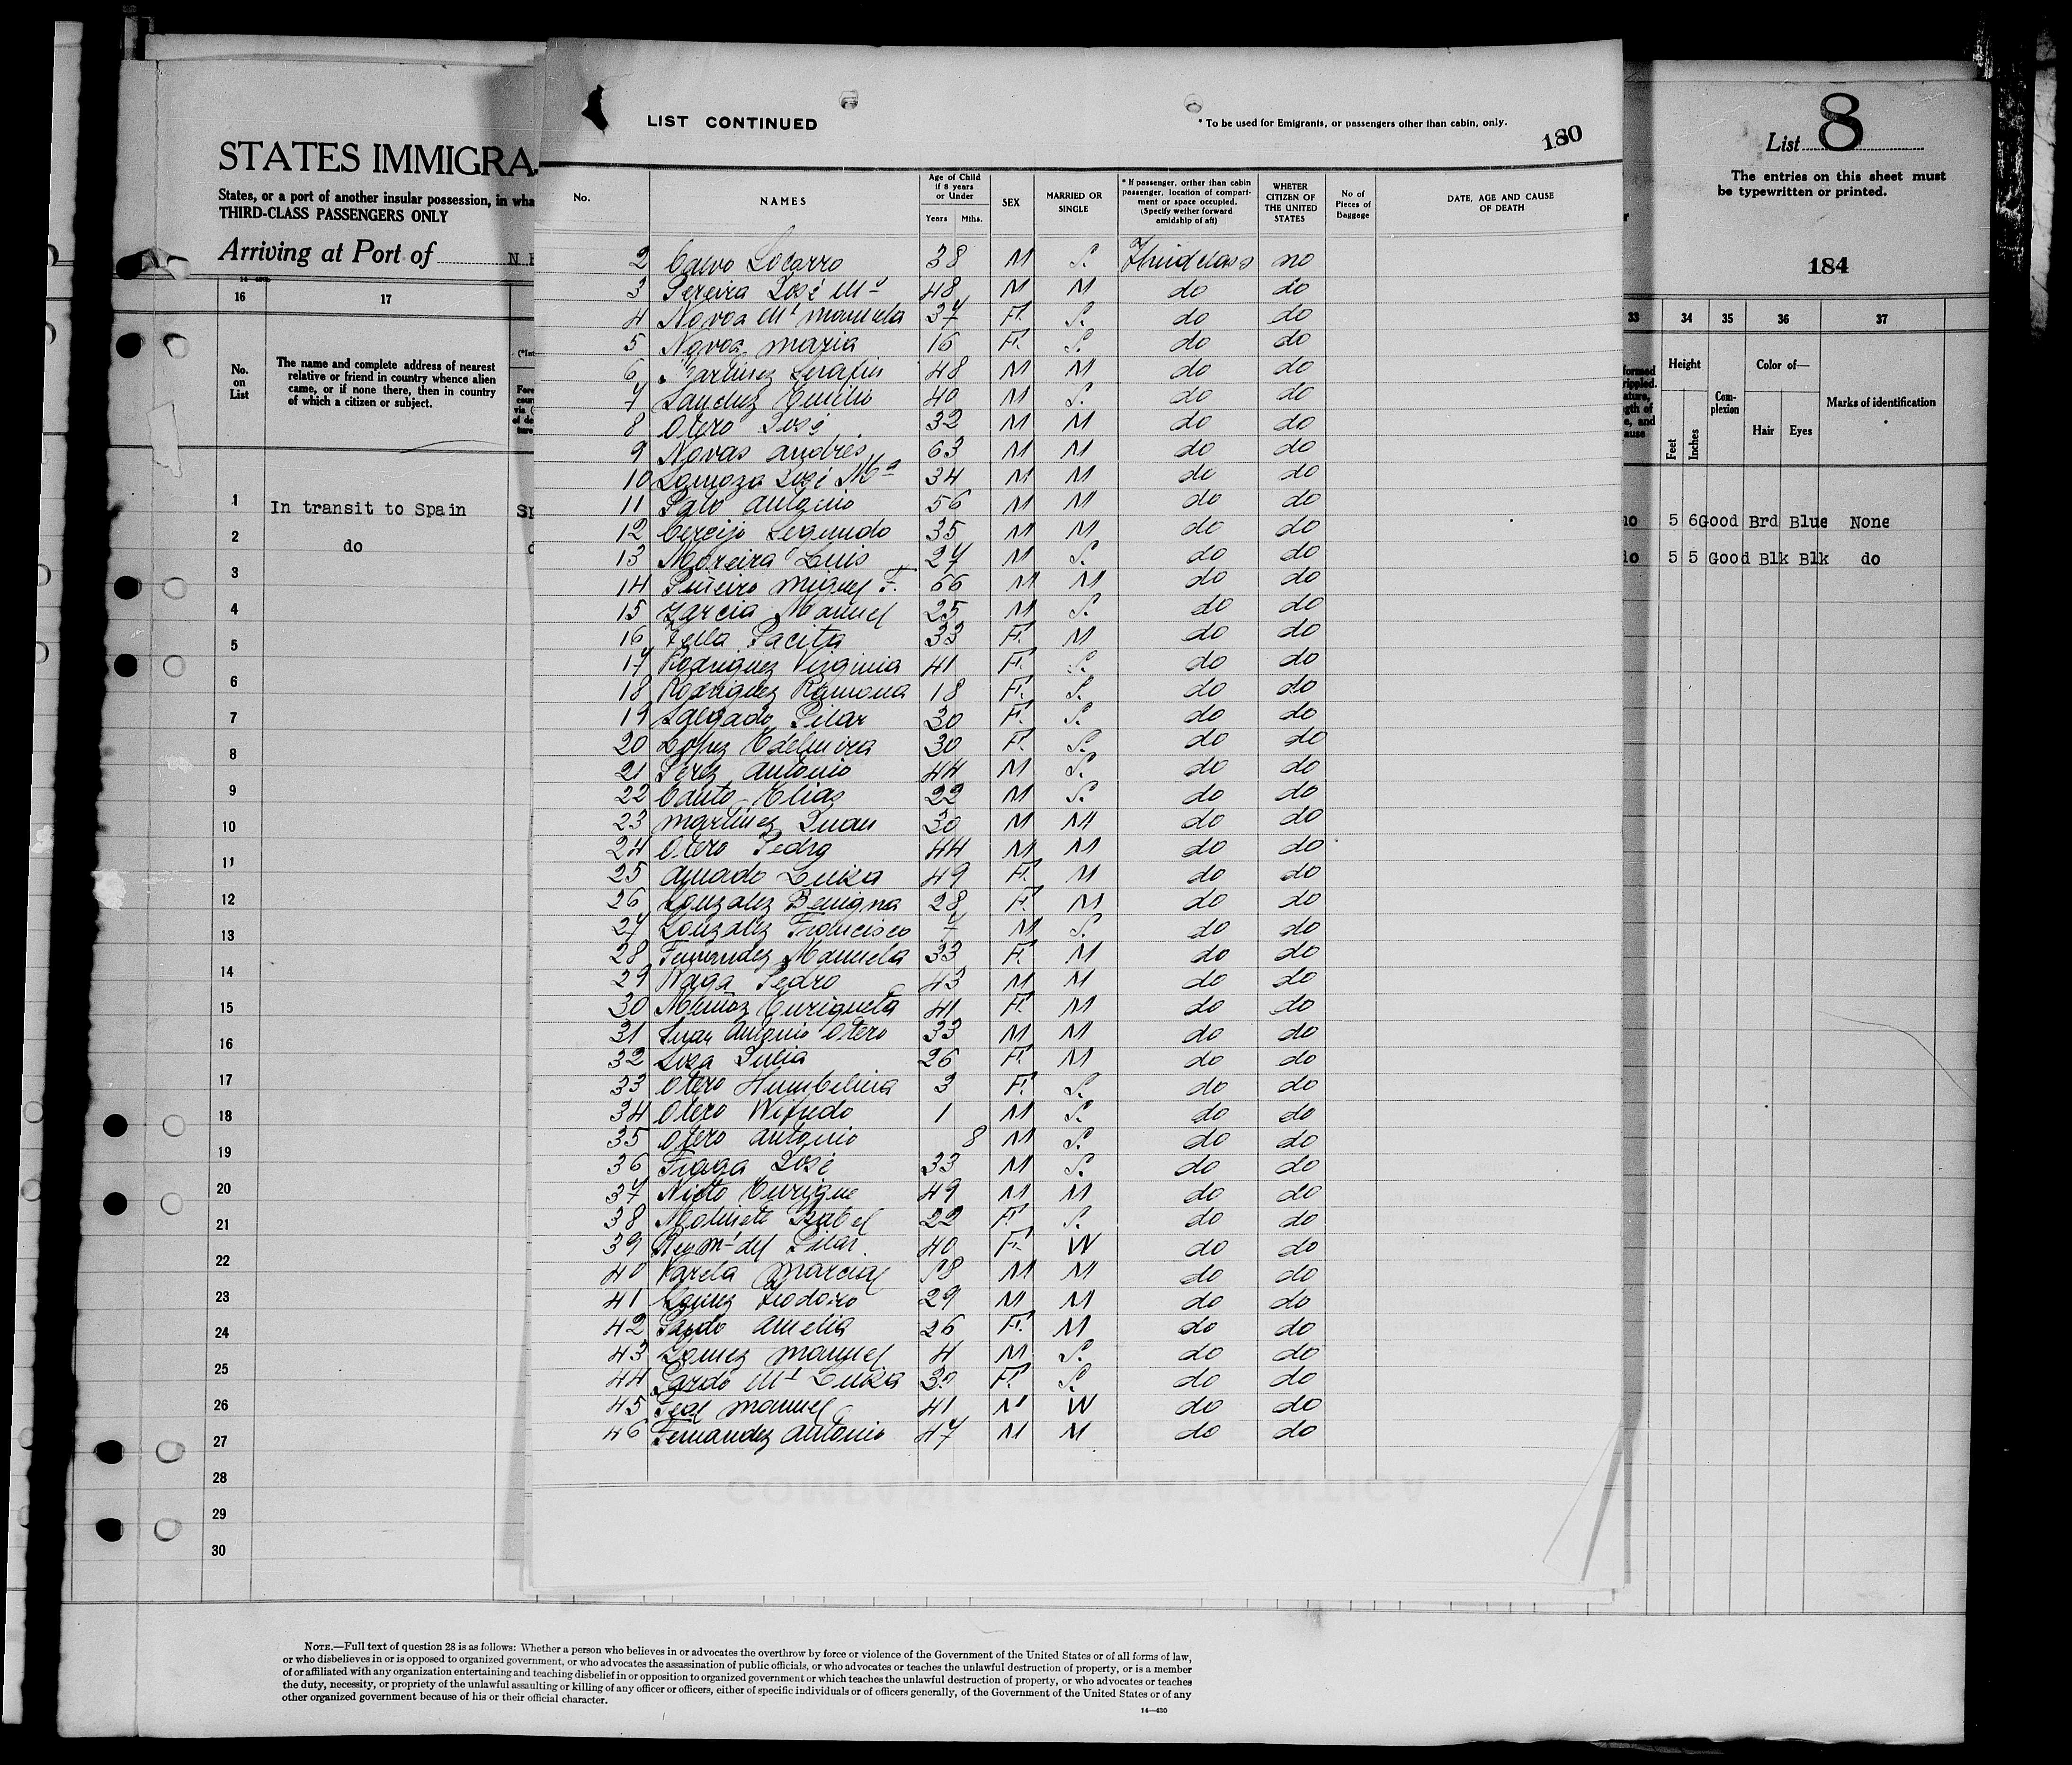 STATES IMMIGRA
States, or a port of another insular possession, in wha
THIRD-CLASS PASSENGERS ONLY
Arriving at Port of
16 17
No. on List
The name and complete address of nearest
relative or friend in country whence alien
came, or if none there, then in country
of which a citizen or subject.
1 In transit to Spain
2 do
3
4
5
6
7
8
9
10
11
12
13
14
15
16
17
18
19
20
21
22
23
24
25
26
27
28
29
30
LIST CONTINUED
* To be used for Emigrants, or passengers other than cabin, only.
180
No. NAMES Age of Child if 8 years or Under Years Mths. SEX MARRIED OR SINGLE * If passenger, orther than cabin passenger, location of compartment or space occupied. (Specify wether forward amidship of aft) WHETER CITIZEN OF THE UNITED STATES No of Pieces of Baggage DATE, AGE AND CAUSE OF DEATH
2 Calvo 38 M S. Third class no
3 Pereira José Mª 48 M M do do
4 Novoa Mª Manuela 37 F. S. do do
5 Novoa Maria 16 F. S. do do
6 Martinez Serafin 48 M M do do
7 Sanchez Emilio 40 M S. do do
8 Otero José 32 M M do do
9 Novas Andres 63 M M do do
10 José Mª 34 M M do do
11 Antonio 56 M M do do
12 Cereijo Segundo 35 M M do do
13 Moreira Luis 27 M S. do do
14 Piñeiro Miguel F. 66 M M do do
15 Garcia Manuel 25 M S. do do
16 Pacita 33 F. M do do
17 Rodriguez Virginia 41 F. S. do do
18 Rodriguez Ramona 18 F. S. do do
19 Salgado Pilar 30 F. S. do do
20 Lopez Edelmira 30 F. S. do do
21 Perez Antonio 44 M S. do do
22 Couto Elias 22 M S. do do
23 Martinez Juan 30 M M do do
24 Otero Pedro 44 M M do do
25 Amado Luisa 49 F. M do do
26 Gonzalez Benigna 28 F. M do do
27 Gonzalez Francisco 7 M S. do do
28 Fernandez Manuela 33 F. M do do
29 Raga Pedro 43 M M do do
30 Muñoz Enriqueta 41 F. M do do
31 Juan Antonio Otero 33 M M do do
32 Julia 26 F. M do do
33 Otero Humbelina 3 F. S. do do
34 Otero Wifredo 1 M S. do do
35 Otero Antonio 8 M S. do do
36 Fraga José 33 M S. do do
37 Nieto Enrique 49 M M do do
38 Isabel 22 F. S. do do
39 Rey Mª del Pilar. 40 F. W do do
40 Varela Marcial 58 M M do do
41 Gomez Teodoro 29 M M do do
42 Pardo Amelia 26 F. M do do
43 Gomez Manuel 4 M S. do do
44 Pardo Mª Luisa 30 F. S. do do
45 Manuel 41 M W do do
46 Fernandez Antonio 47 M M do do
List 8
The entries on this sheet must
be typewritten or printed.
184
33 34 35 36 37
Height Feet Inches Complexion Color of— Hair Eyes Marks of identification
no 5 6 Good Brd Blue None
5 5 Good Blk Blk do
NOTE.—Full text of question 28 is as follows: Whether a person who believes in or advocates the overthrow by force or violence of the Government of the United States or of all forms of law,
or who disbelieves in or is opposed to organized government, or who advocates the assassination of public officials, or who advocates or teaches the unlawful destruction of property, or is a member
of or affiliated with any organization entertaining and teaching disbelief in or opposition to organized government or which teaches the unlawful destruction of property, or who advocates or teaches
the duty, necessity, or propriety of the unlawful assaulting or killing of any officer or officers, either of specific individuals or of officers generally, of the Government of the United States or of any
other organized government because of his or their official character.
14—430